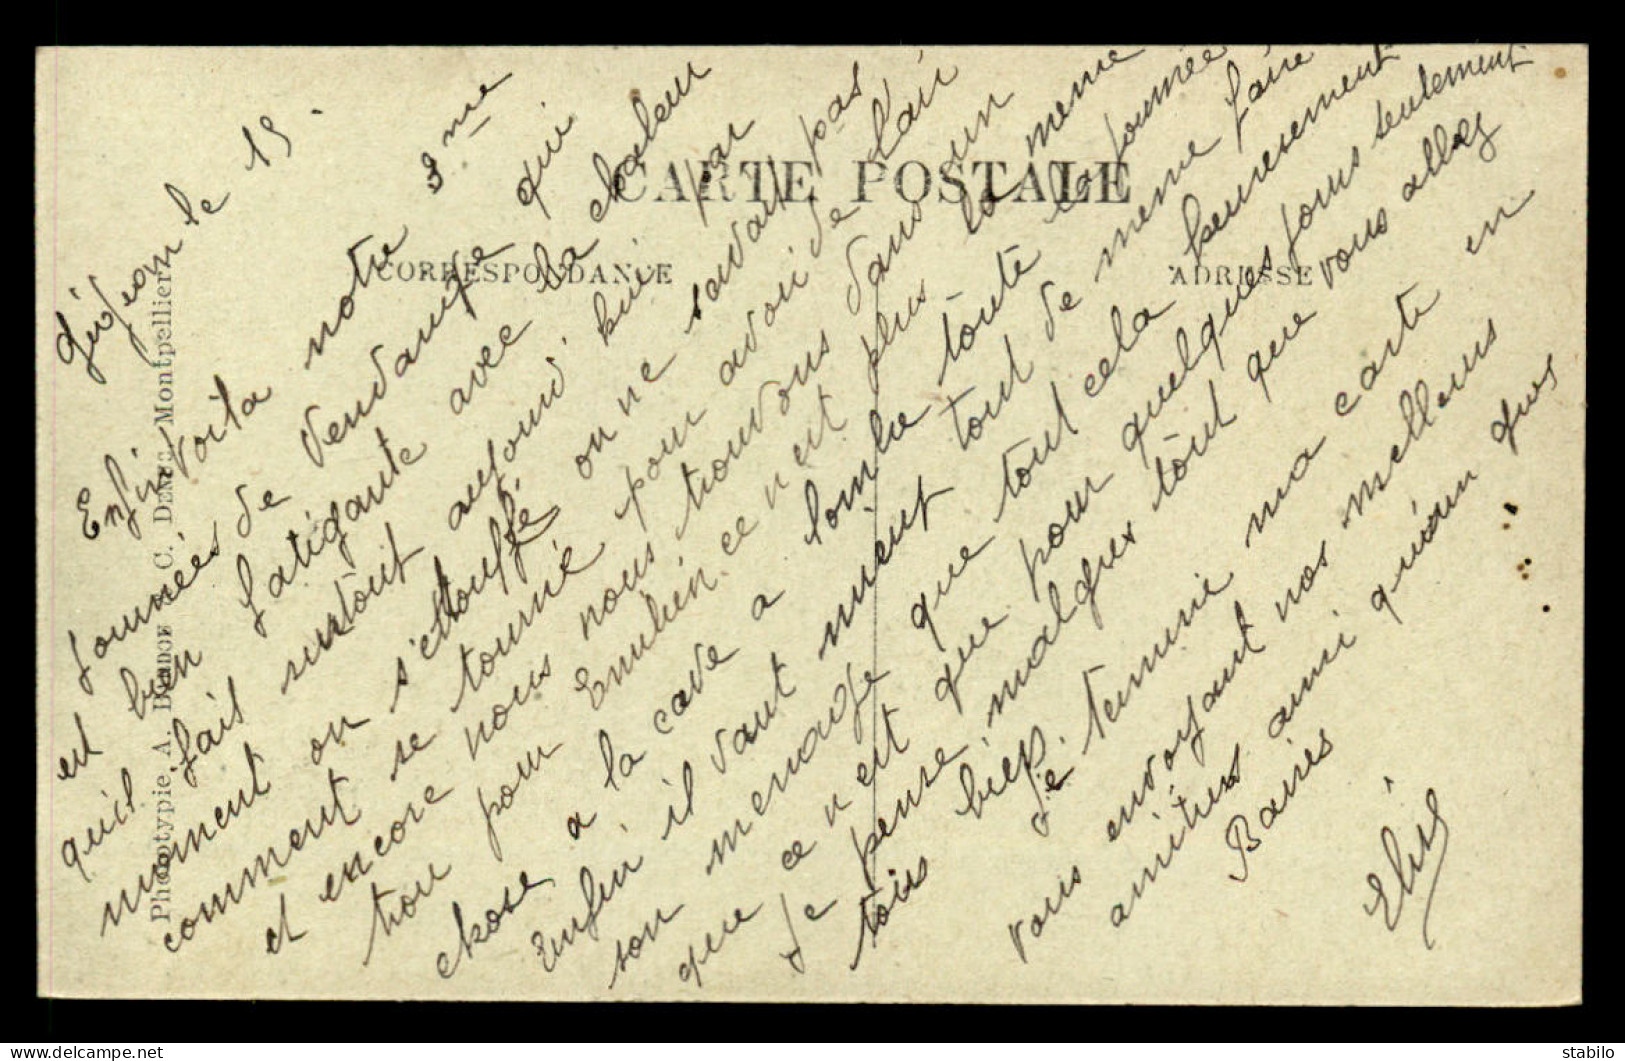 CARTE POSTALE
CORRESPONDANCE
ADRESSE
Phototypie A. C. Montpellier
le 19.
Enfin voila notre 3me
Journées de vendange qui
est bien fatigante avec la chaleur
quil fait surtout aujourd'hui par
moment on s'ettouffé on ne savait pas
comment se tourné pour avoir de l'air
et encore nous nous trouvons dans un
trou pour Emilien ce n est plus la meme
chose a la cave a lombre toute la journée
Enfin il vaut mieut tout de meme faire
son menage que tout cela heureusement
que ce n est que pour quelques jours seulement
Je pense malgres tout que vous allez
tous bien. Je termine ma carte en
vous envoyant nos meilleurs
amities ainsi quiaun
Baires